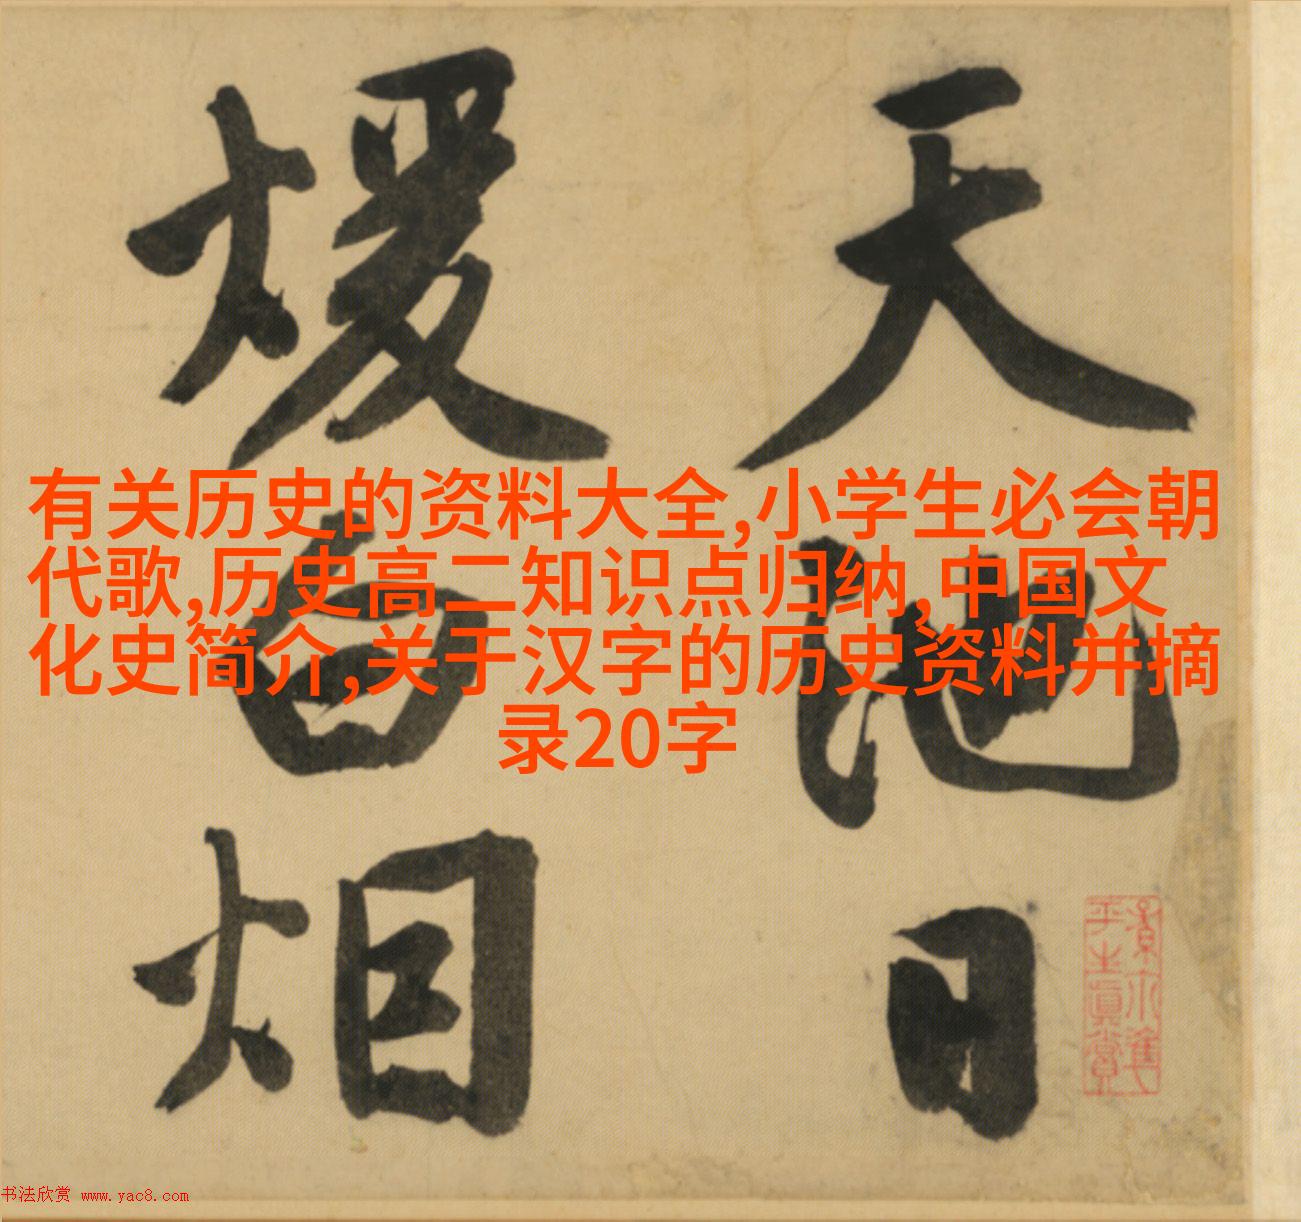 天池日
煖百
有关历史的资料大全,小学生必会朝
代歌,历史高二知识点归纳,中国文
化史简介,关于汉字的历史资料并摘
录20字
书法欣赏 www.yac8.com